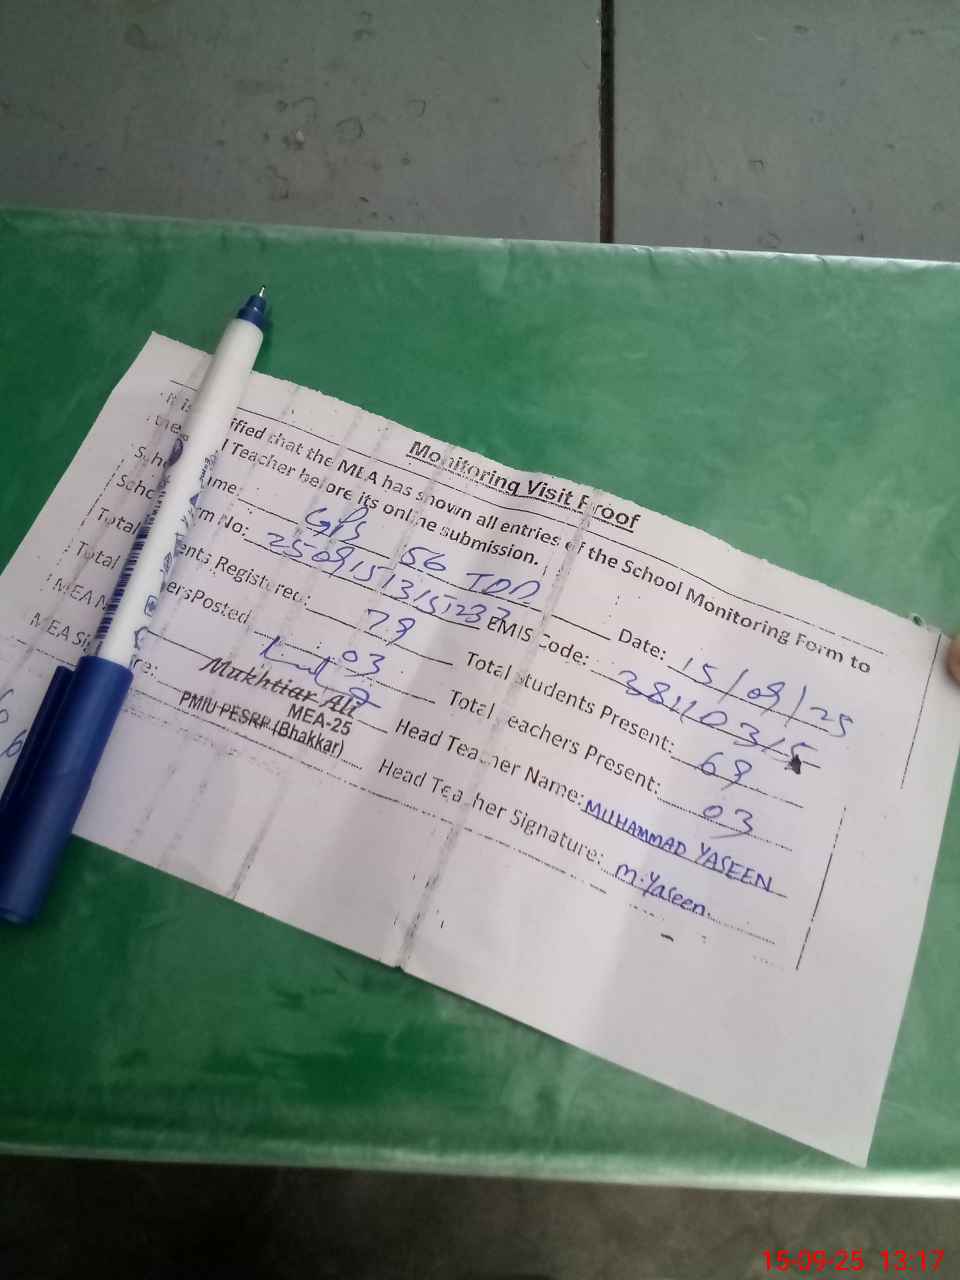 Monitoring Visit Proof
It is ified that the MEA has shown all entries of the School Monitoring Form to
the l Teacher before its online submission.
Scho ame: GPS 56 TDA Date: 15/09/25
Scho rm No: 25091513151237 EMIS Code: 38110315
Total ents Registered: 79 Total Students Present: 69
Total ersPosted 03 Total Teachers Present: 03
MEA N Mukhtiar Ali Head Teacher Name: MUHAMMAD YASEEN
MEA-25
MEA Si re: PMIU PESRP (Bhakkar) Head Teacher Signature: M.Yaseen
15-09-25 13:17